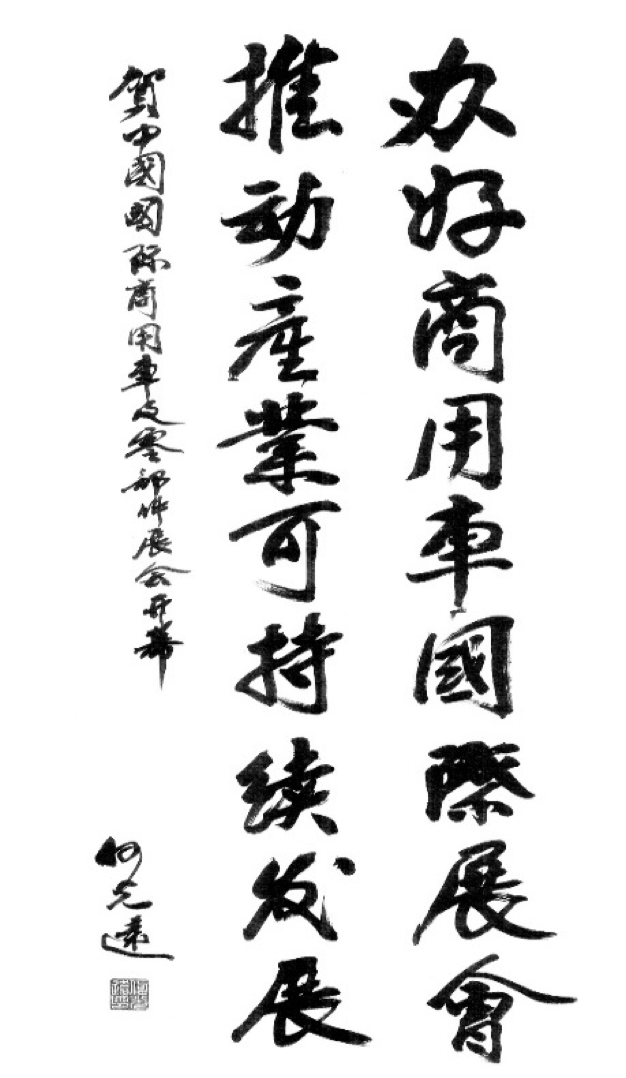 办好商用車國際展會
推动產業可持续发展
賀中國國际商用車及零部件展会开幕
何光遠